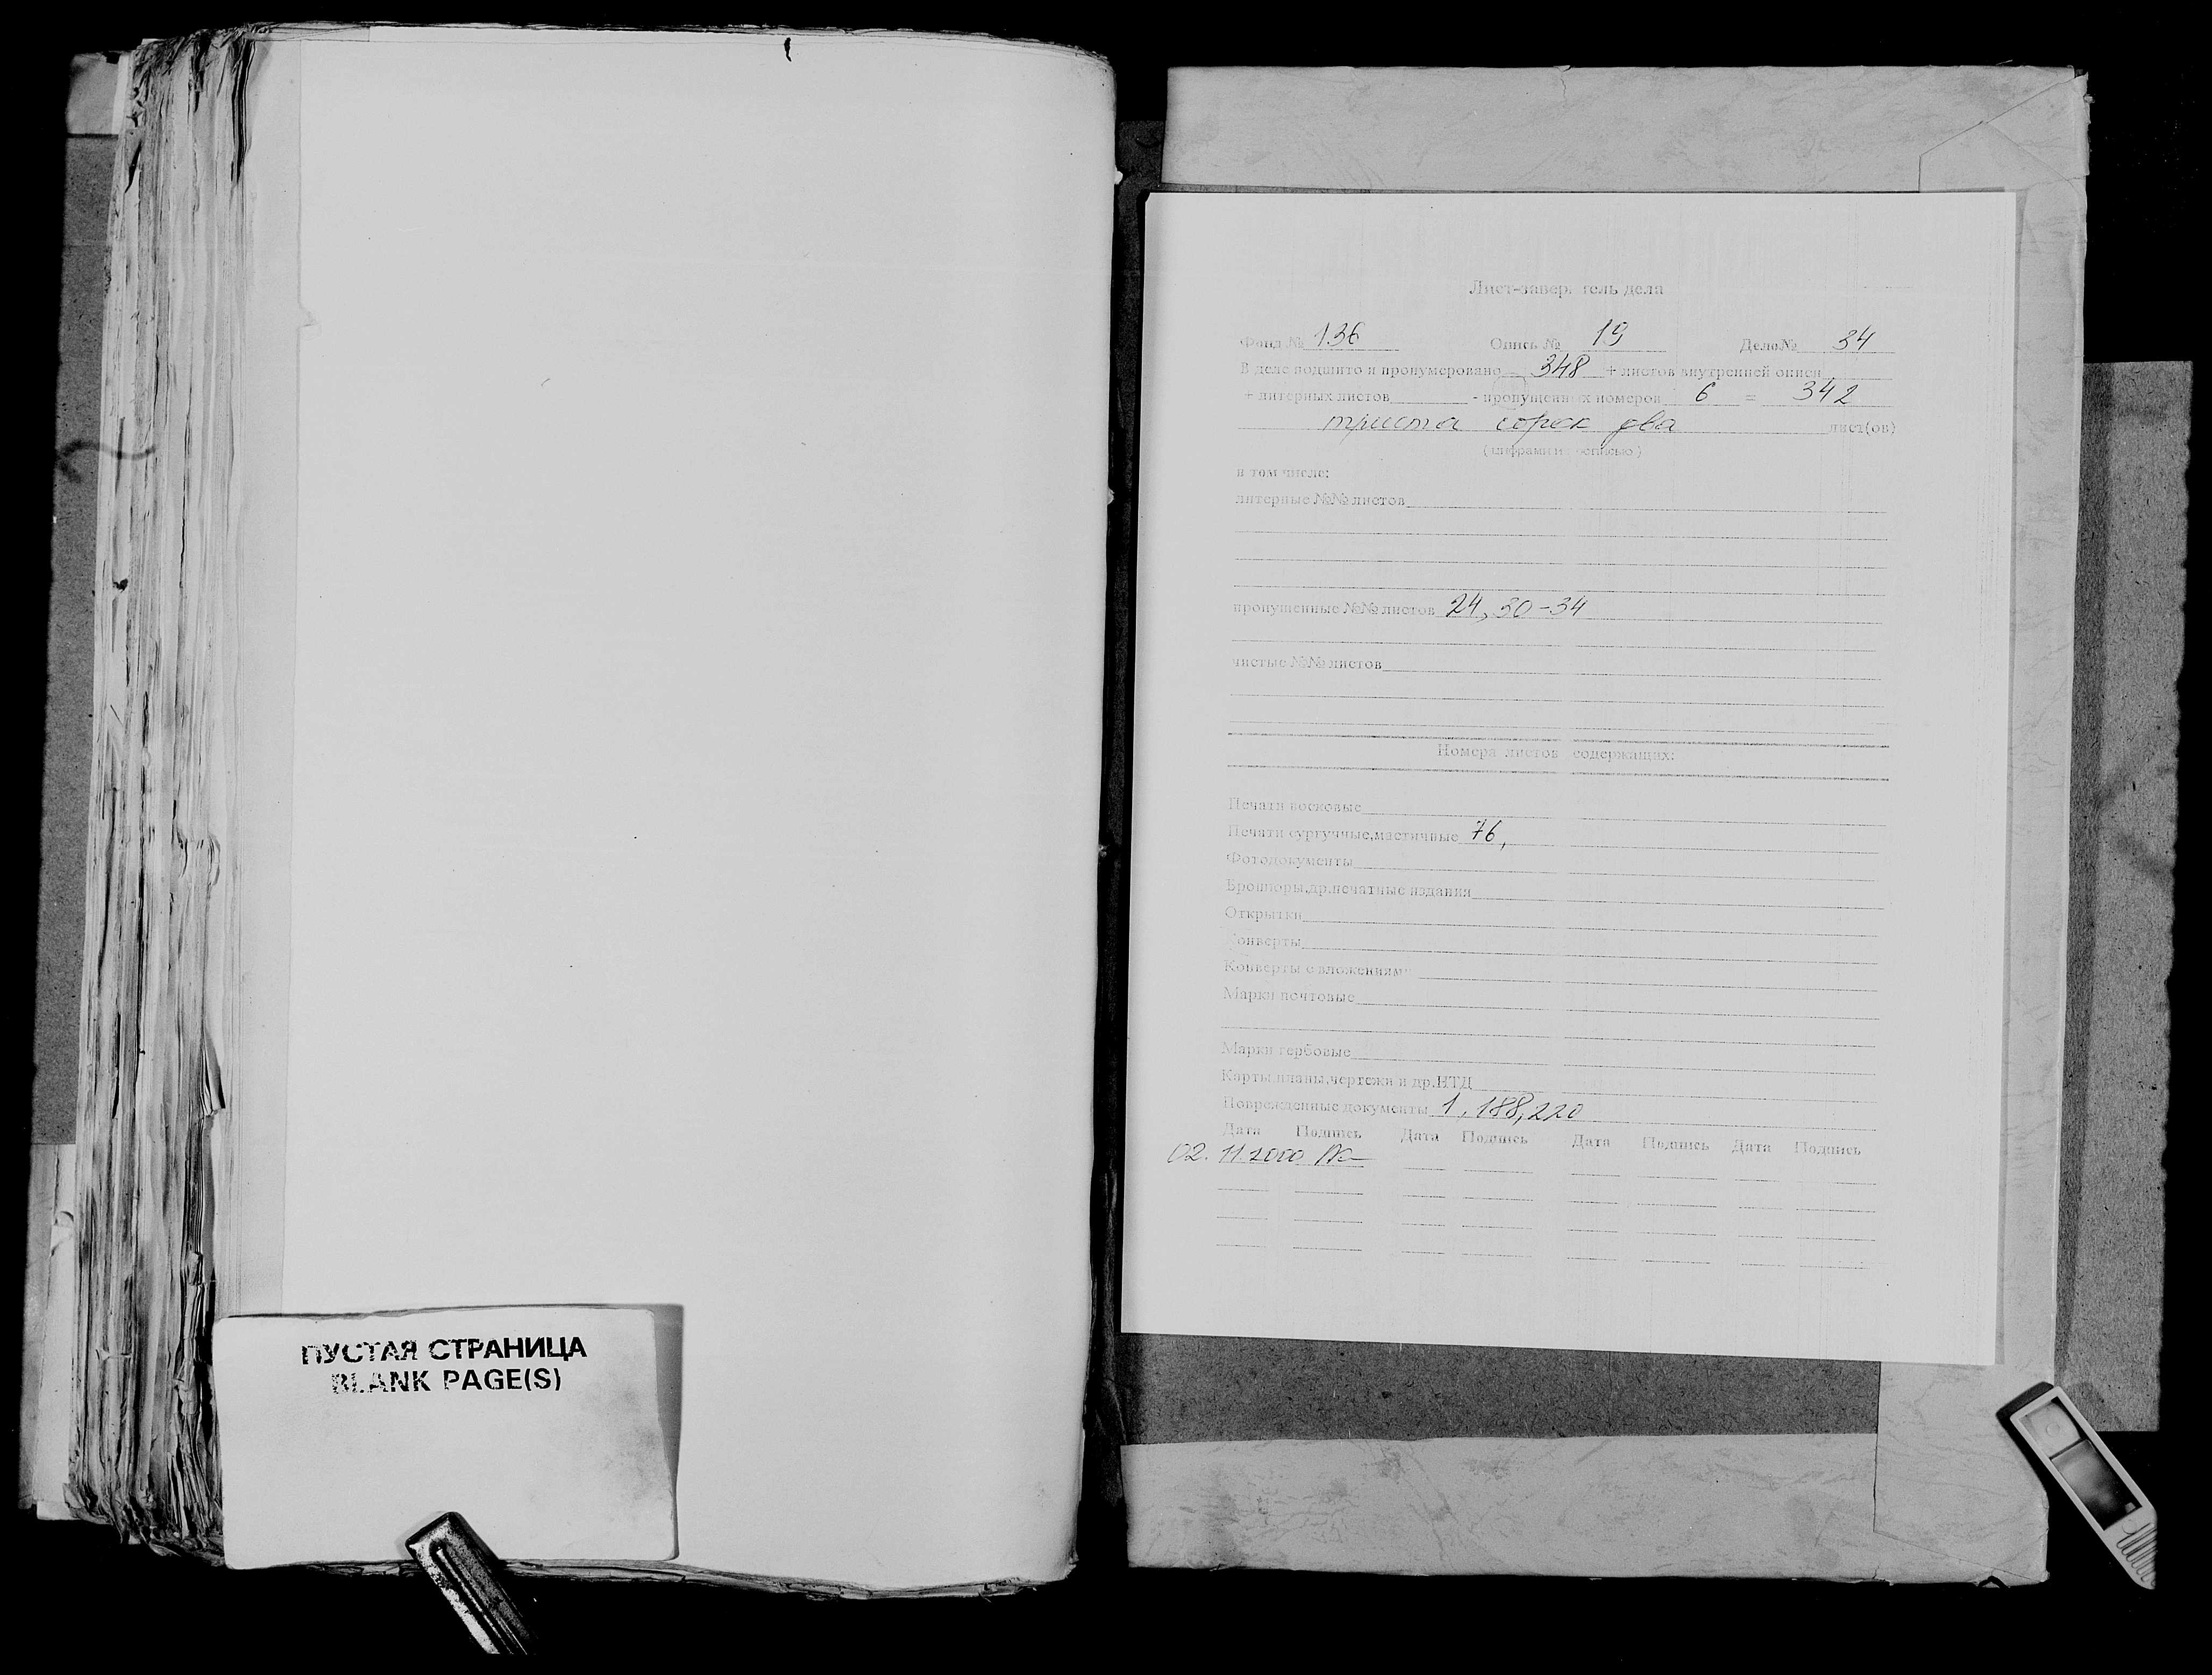 ПУСТАЯ СТРАНИЦА
BLANK PAGE(S)
Лист-завер тель дела
Фонд № 136 Опись № 19 Дело№ 34
В деле подшито и пронумеровано 348 + листов внутренней описи
+ литерных листов - пропущенных номеров 6 = 342
триста сорок два лист(ов)
(цифрами и прописью)
в том числе:
литерные №№ листов
пропущенные №№ листов 24, 30-34
чистые №№ листов
Номера листов содержащих:
Печати восковые
Печати сургучные,мастичные 76,
Фотодокументы
Брошюры,др.печатные издания
Открытки
Конверты
Конверты с вложениями
Марки почтовые
Марки гербовые
Карты,планы,чертежи и др.НТД
Поврежденные документы 1, 188, 220
Дата Подпись Дата Подпись Дата Подпись Дата Подпись
02. 11.2000